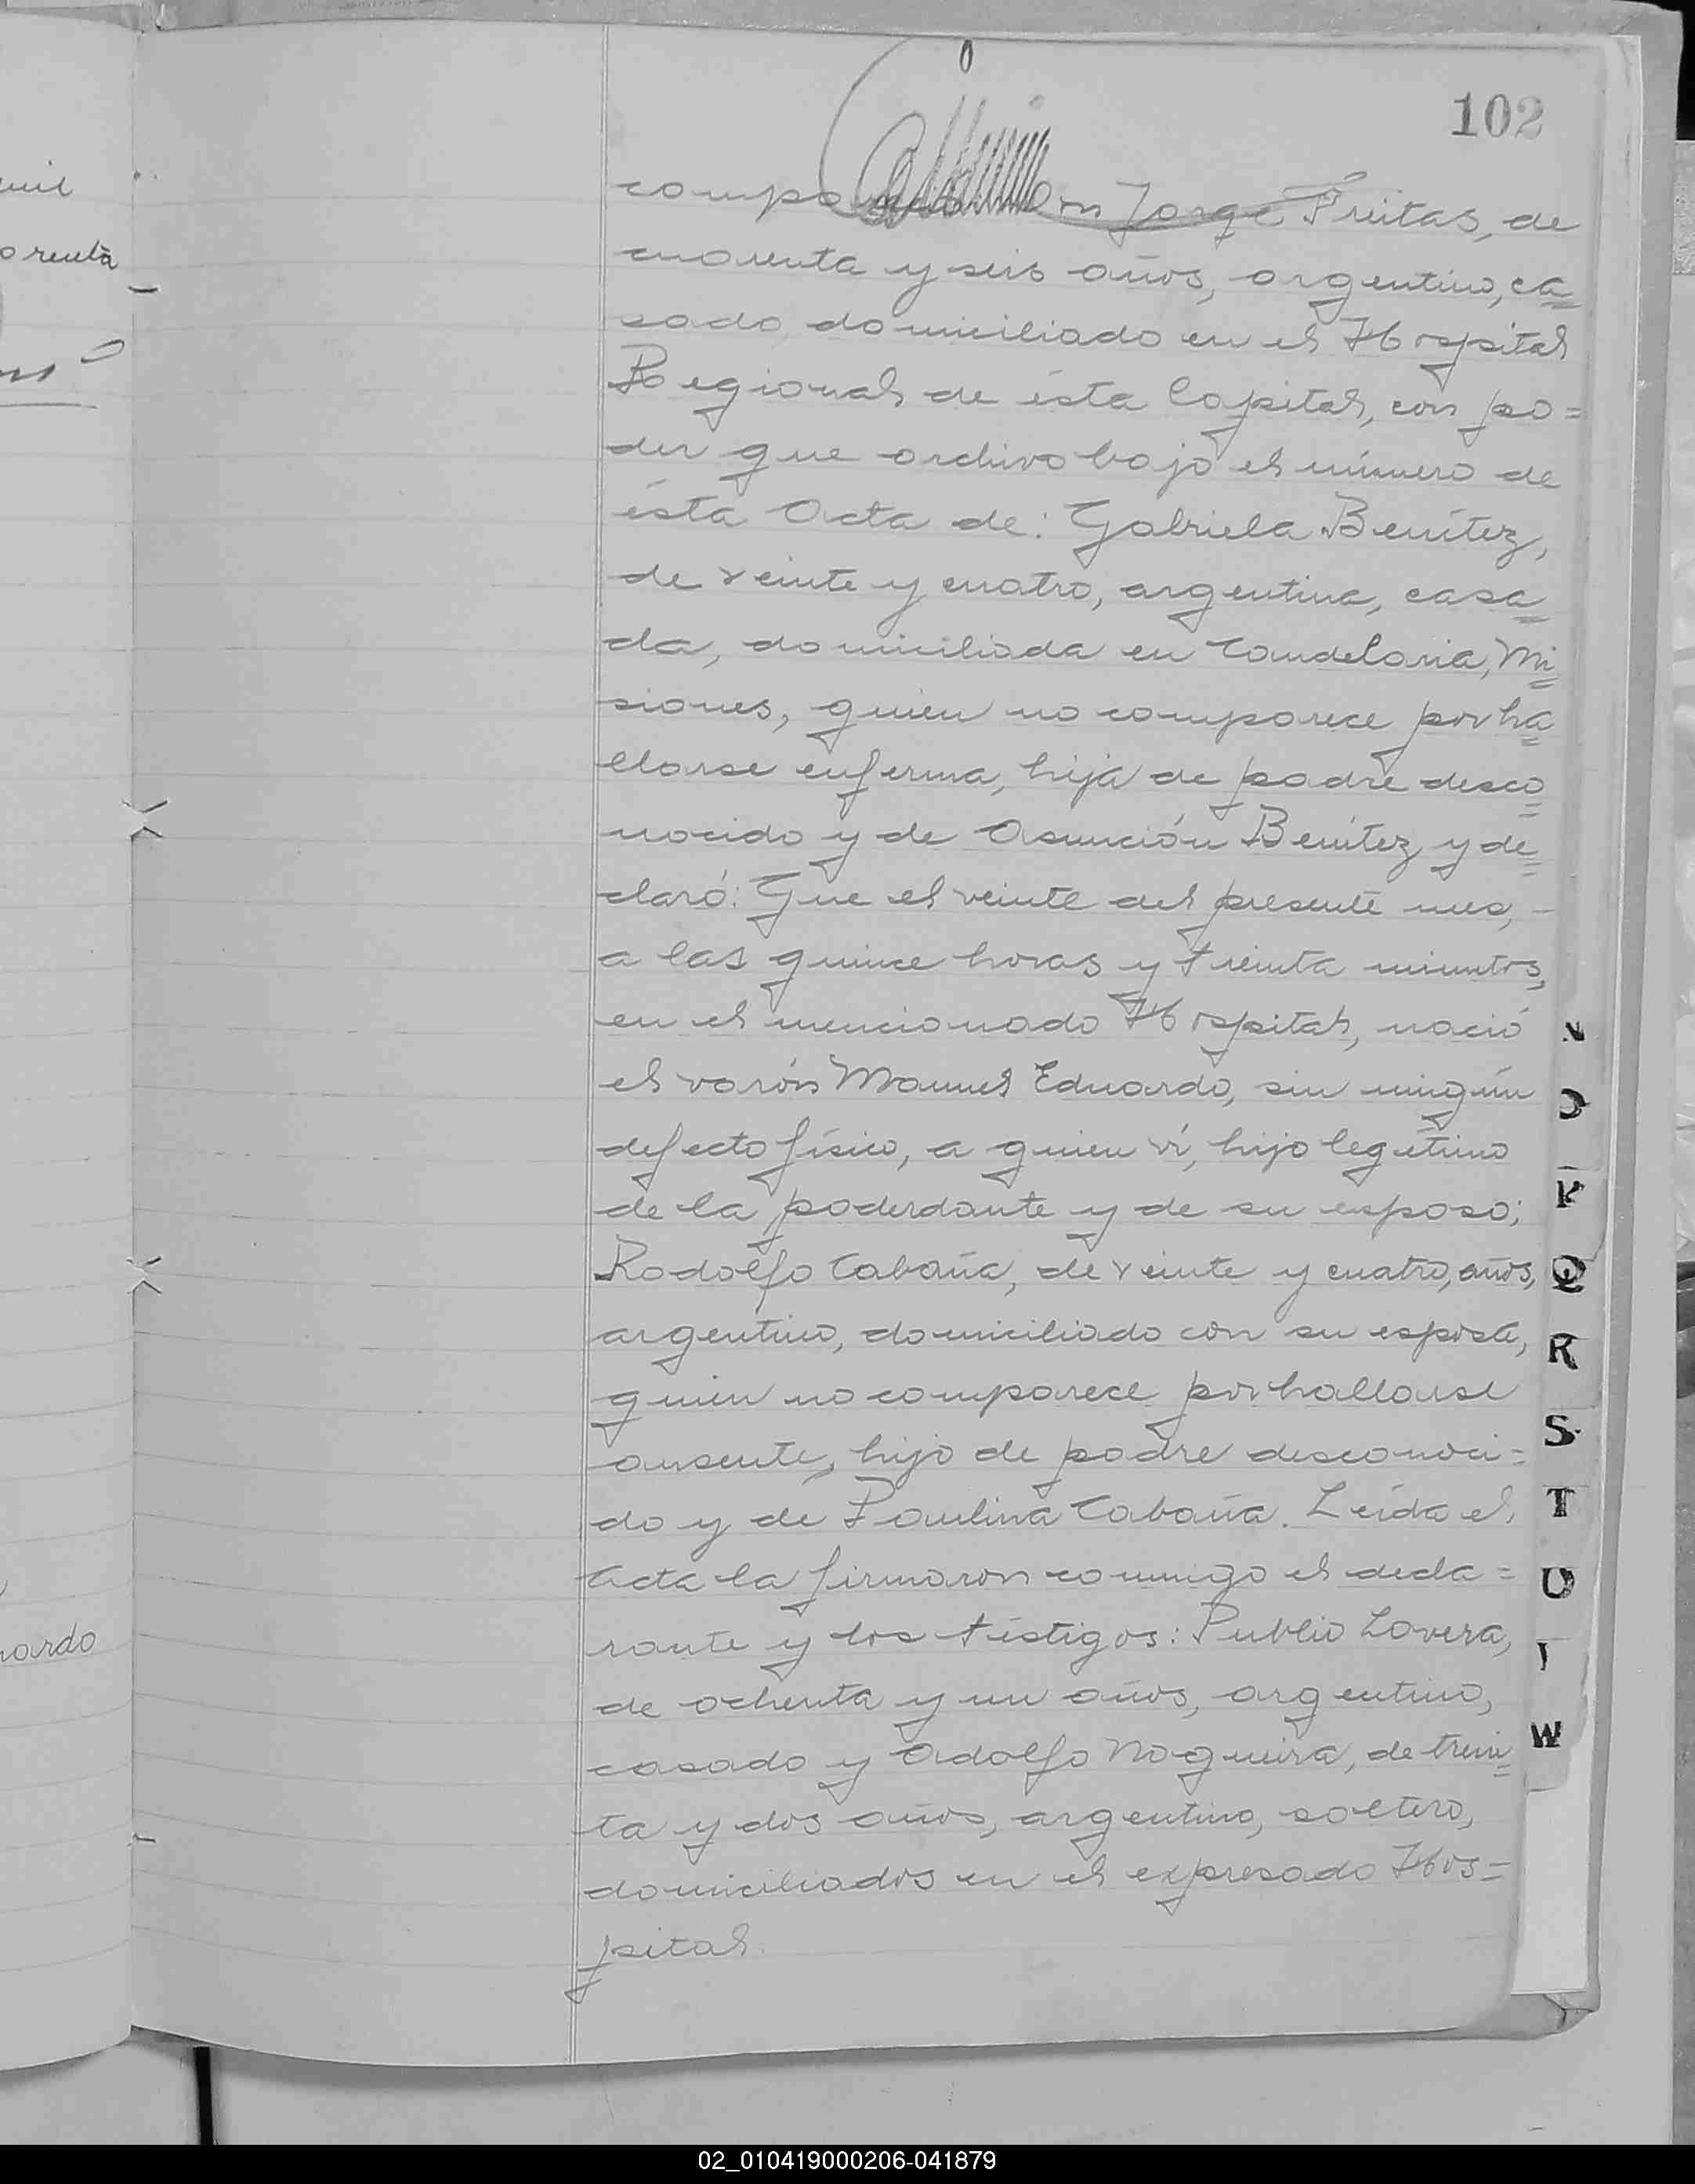 102
Jorge Freitas, de
cuarenta y seis años, argentino, ca=
sado, domiciliado en el Hospital
Regional de ésta Capital, con po=
der que archivo bajo el número de
ésta Acta de: Gabriela Benítez,
de veinte y cuatro, argentina, casa=
da, domiciliada en Candelaria, Mi=
siones, quien no comparece por ha=
llarse enferma, hija de padre desco=
nocido y de Asunción Benítez y de=
claró: Que el veinte del presente mes, -
a las quince horas y treinta minutos,
en el mencionado Hospital, nació
el varón Manuel Eduardo, sin ningún
defecto físico, a quien ví, hijo legítimo
de la poderdante y de su esposo;
Rodolfo Cabaña, de veinte y cuatro, años,
argentino, domiciliado con su esposa,
quien no comparece por hallarse
ausente, hijo de padre desconoci=
do y de Paulina Cabaña. Leída el
Acta la firmaron conmigo el decla=
rante y los téstigos: Publio Lovera,
de ochenta y un años, argentino,
casado y Adolfo Nogueira, de trein=
ta y dos años, argentino, soltero,
domiciliados en el expresado Hos=
pital.
mil
nardo
N
O
P
Q
R
S
T
U
W
02_010419000206-041879